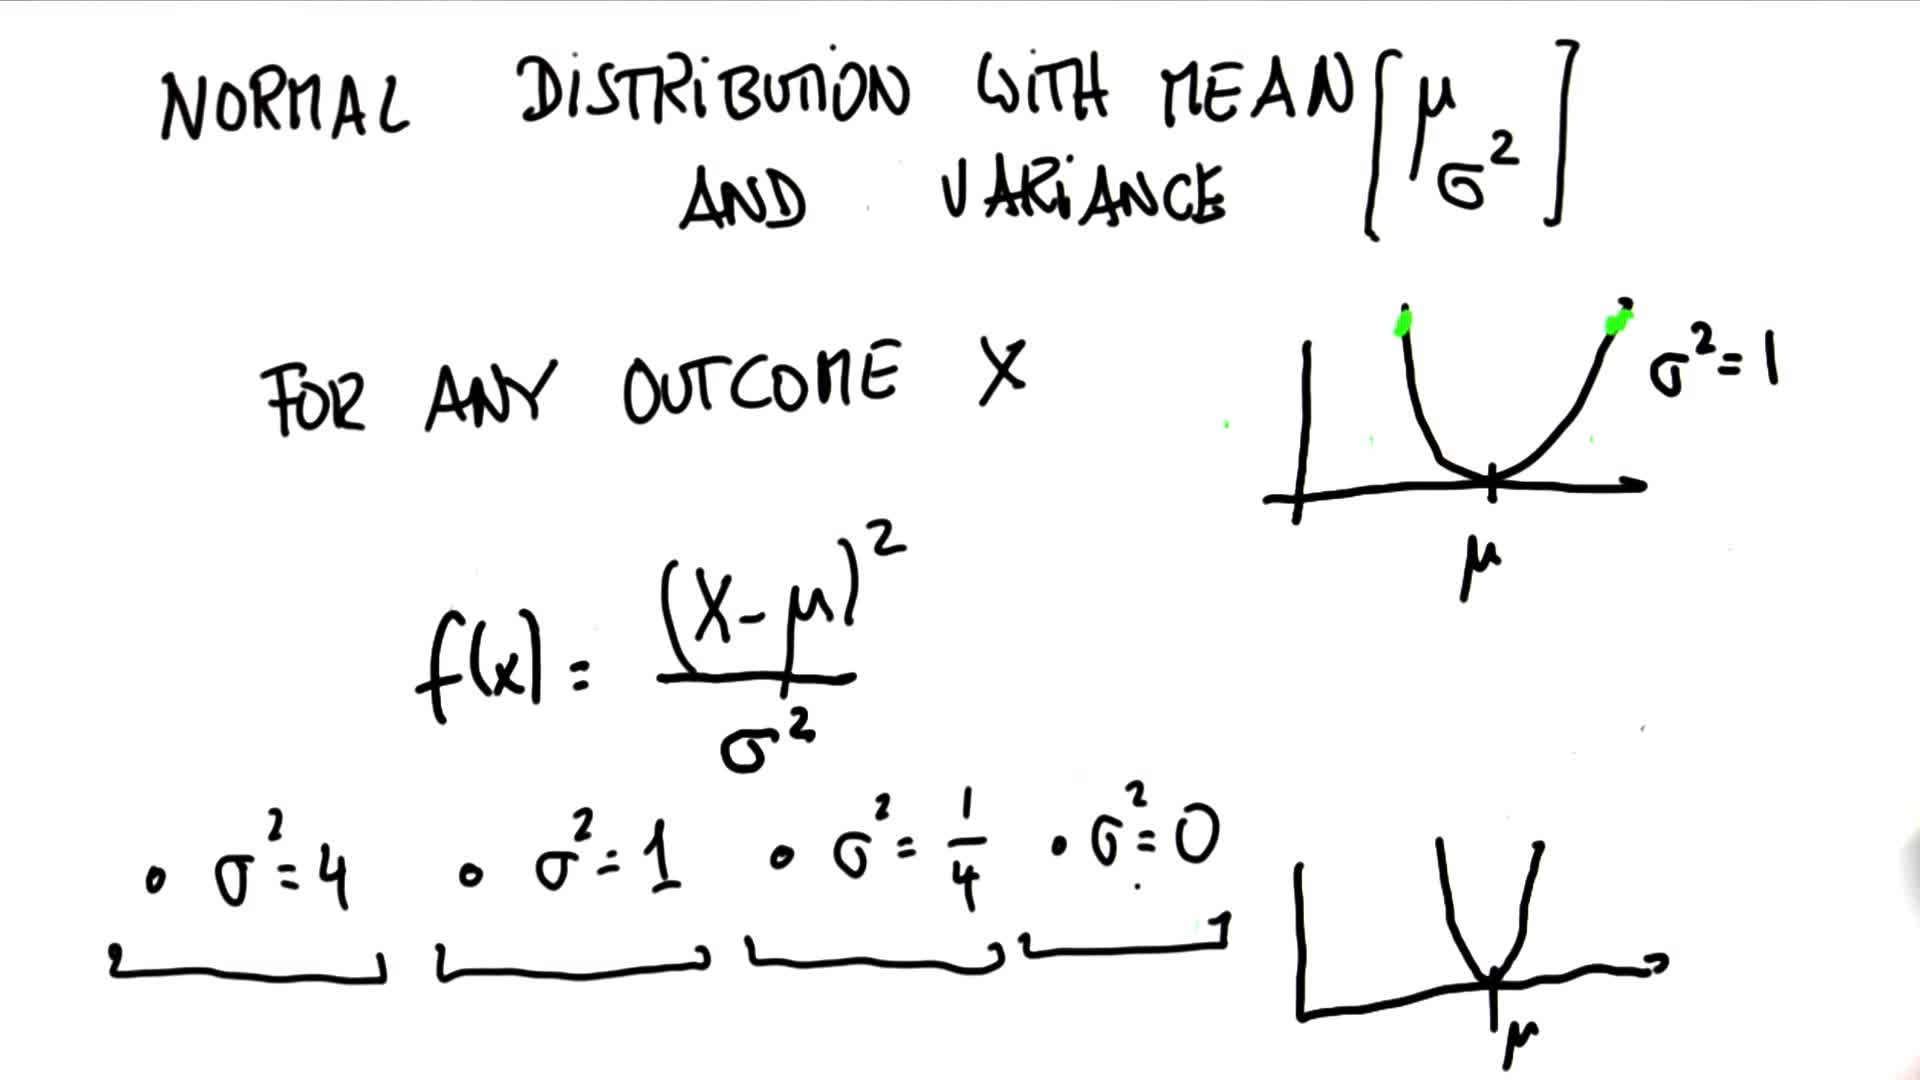 NORMAL DISTRIBUTION WITH MEAN [μ
AND VARIANCE σ²]
FOR ANY OUTCOME X
σ² = 1
μ
f(x) = (X-μ)² / σ²
• σ² = 4 • σ² = 1 • σ² = 1/4 • σ² = 0
μ